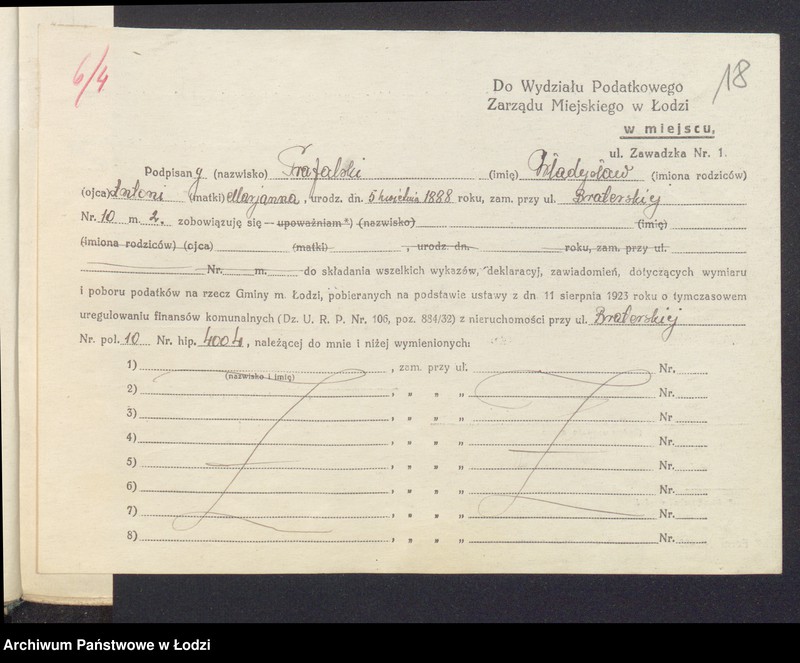 6/4
18
Do Wydziału Podatkowego
Zarządu Miejskiego w Łodzi
w miejscu,
ul. Zawadzka Nr. 1.
Podpisany (nazwisko) Trafalski (imię) Władysław (imiona rodziców)
(ojca) Antoni (matki) Marjanna, urodz. dn. 5 kwietnia 1888 roku, zam. przy ul. Braterskiej
Nr. 10 m. 2. zobowiązuję się — upoważniam*) (nazwisko) (imię)
(imiona rodziców) (ojca) (matki) , urodz. dn. roku, zam. przy ul.
Nr. m. do składania wszelkich wykazów, deklaracyj, zawiadomień, dotyczących wymiaru
i poboru podatków na rzecz Gminy m. Łodzi, pobieranych na podstawie ustawy z dn 11 sierpnia 1923 roku o tymczasowem
uregulowaniu finansów komunalnych (Dz. U. R. P. Nr. 106, poz. 884/32) z nieruchomości przy ul. Braterskiej
Nr. pol. 10 Nr. hip. 4004, należącej do mnie i niżej wymienionych:
1) , zam. przy ul. Nr.
(nazwisko i imię)
2) , „ „ „ Nr.
3) , „ „ „ Nr
4) , „ „ „ Nr.
5) , „ „ „ Nr.
6) , „ „ „ Nr.
7) , „ „ „ Nr.
8) , „ „ „ Nr.
Archiwum Państwowe w Łodzi